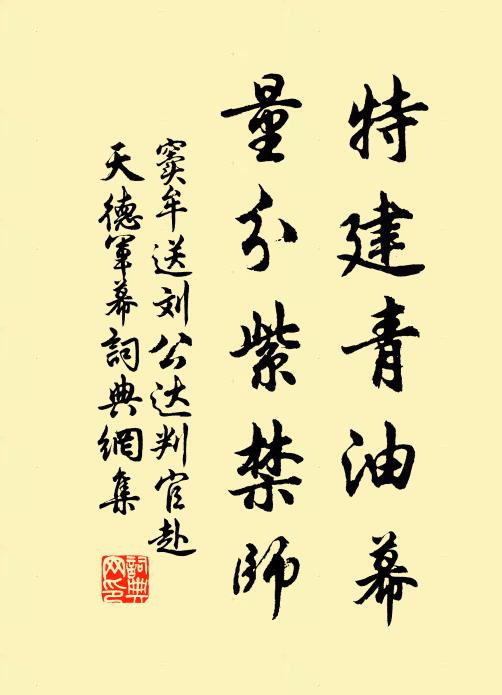 特建青油幕
量分紫禁師
窦牟送刘公达判官赴
天德軍幕詞典網集
詞典
网印